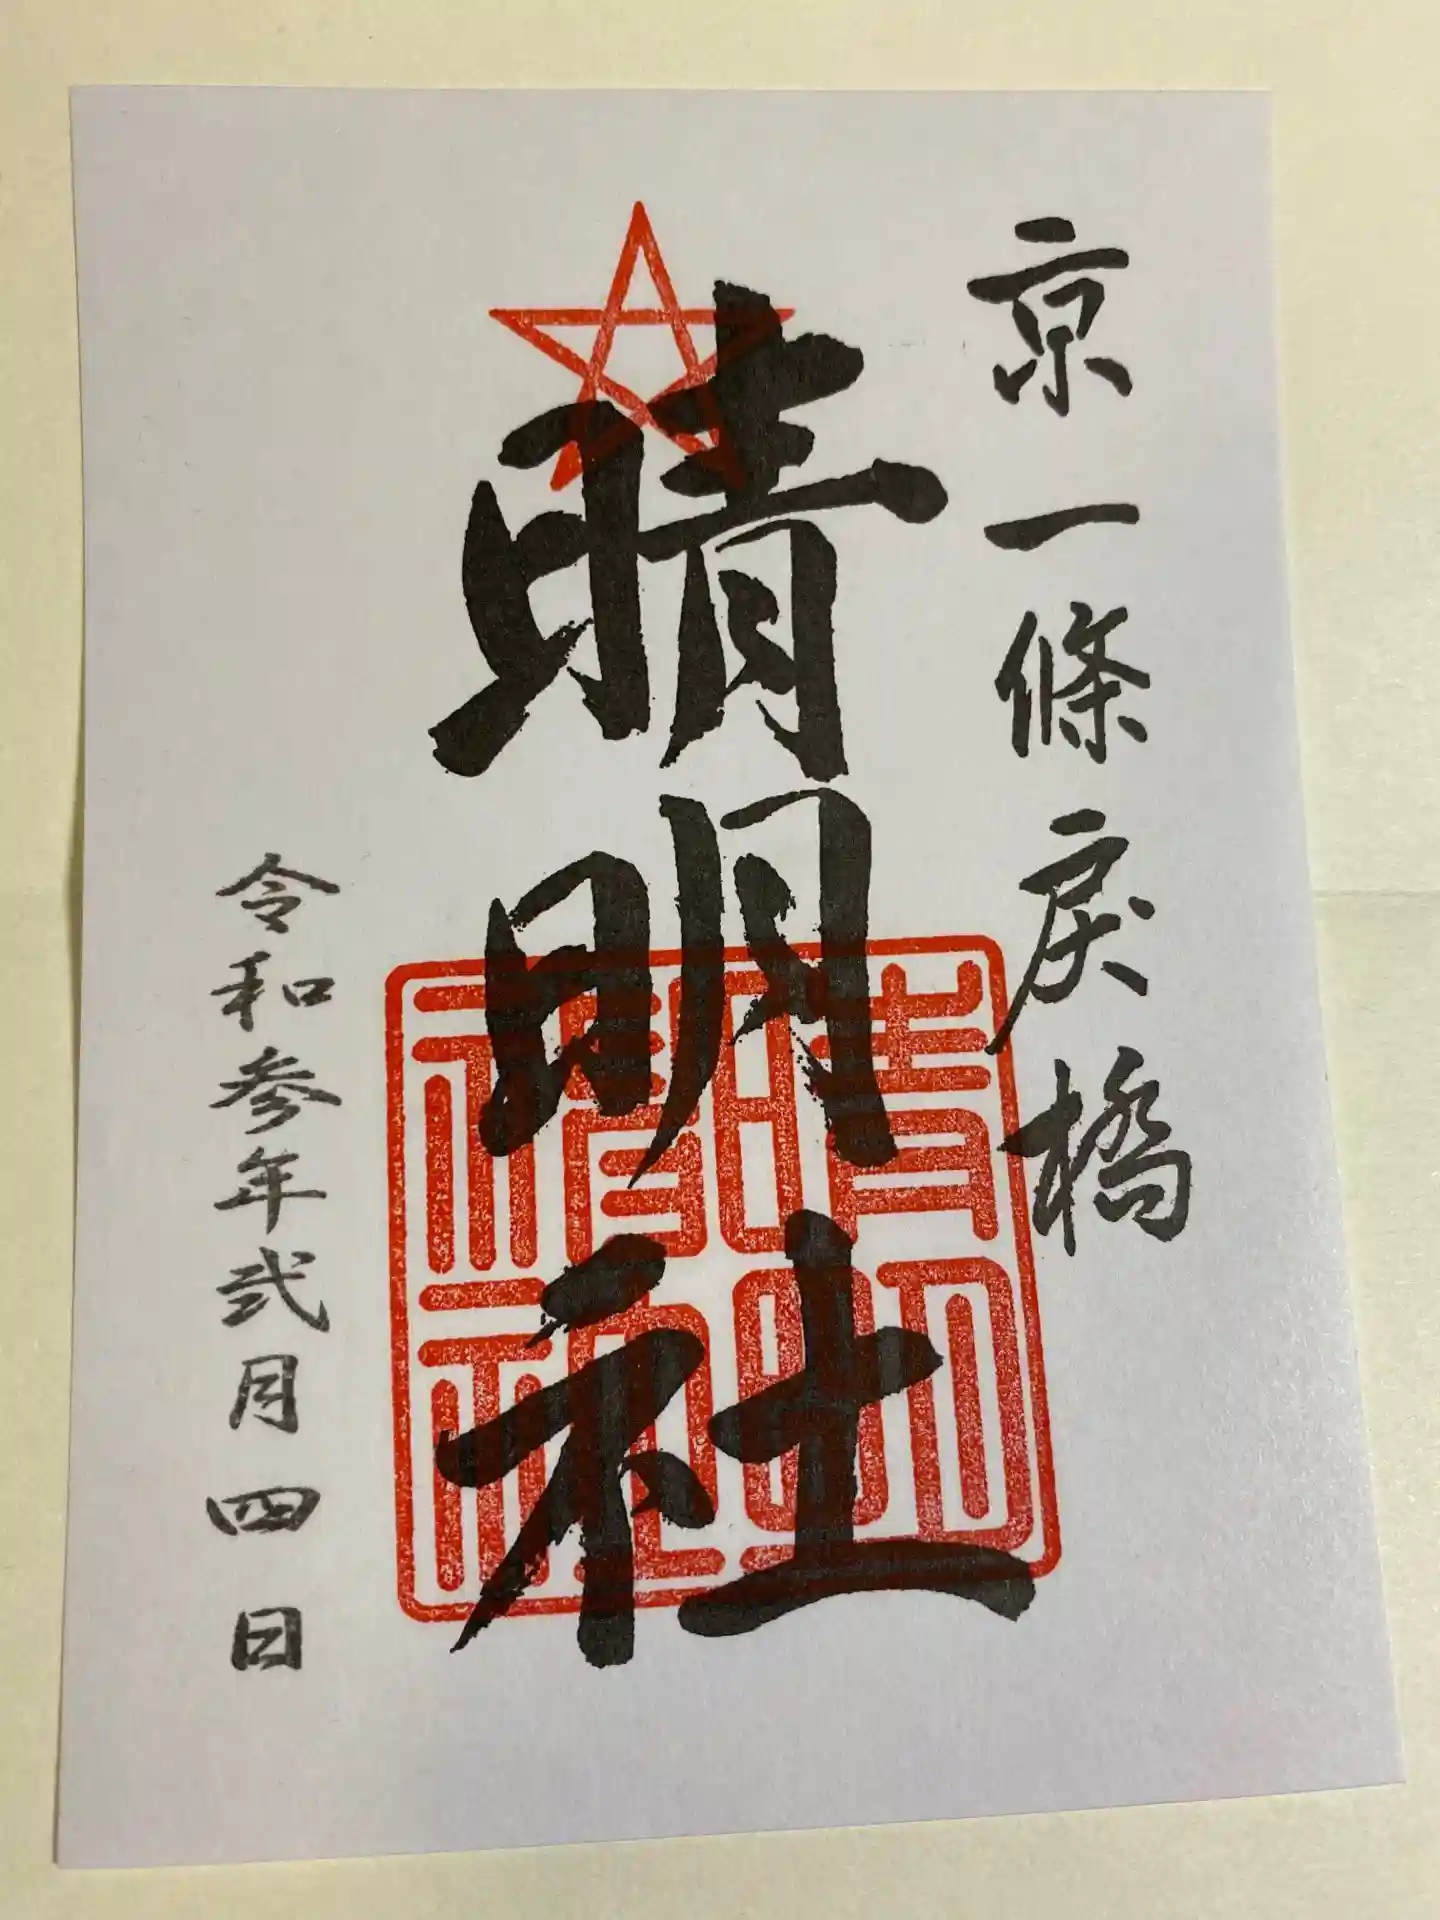 京一條戻橋
晴明社
晴明神社
令和参年弐月四日